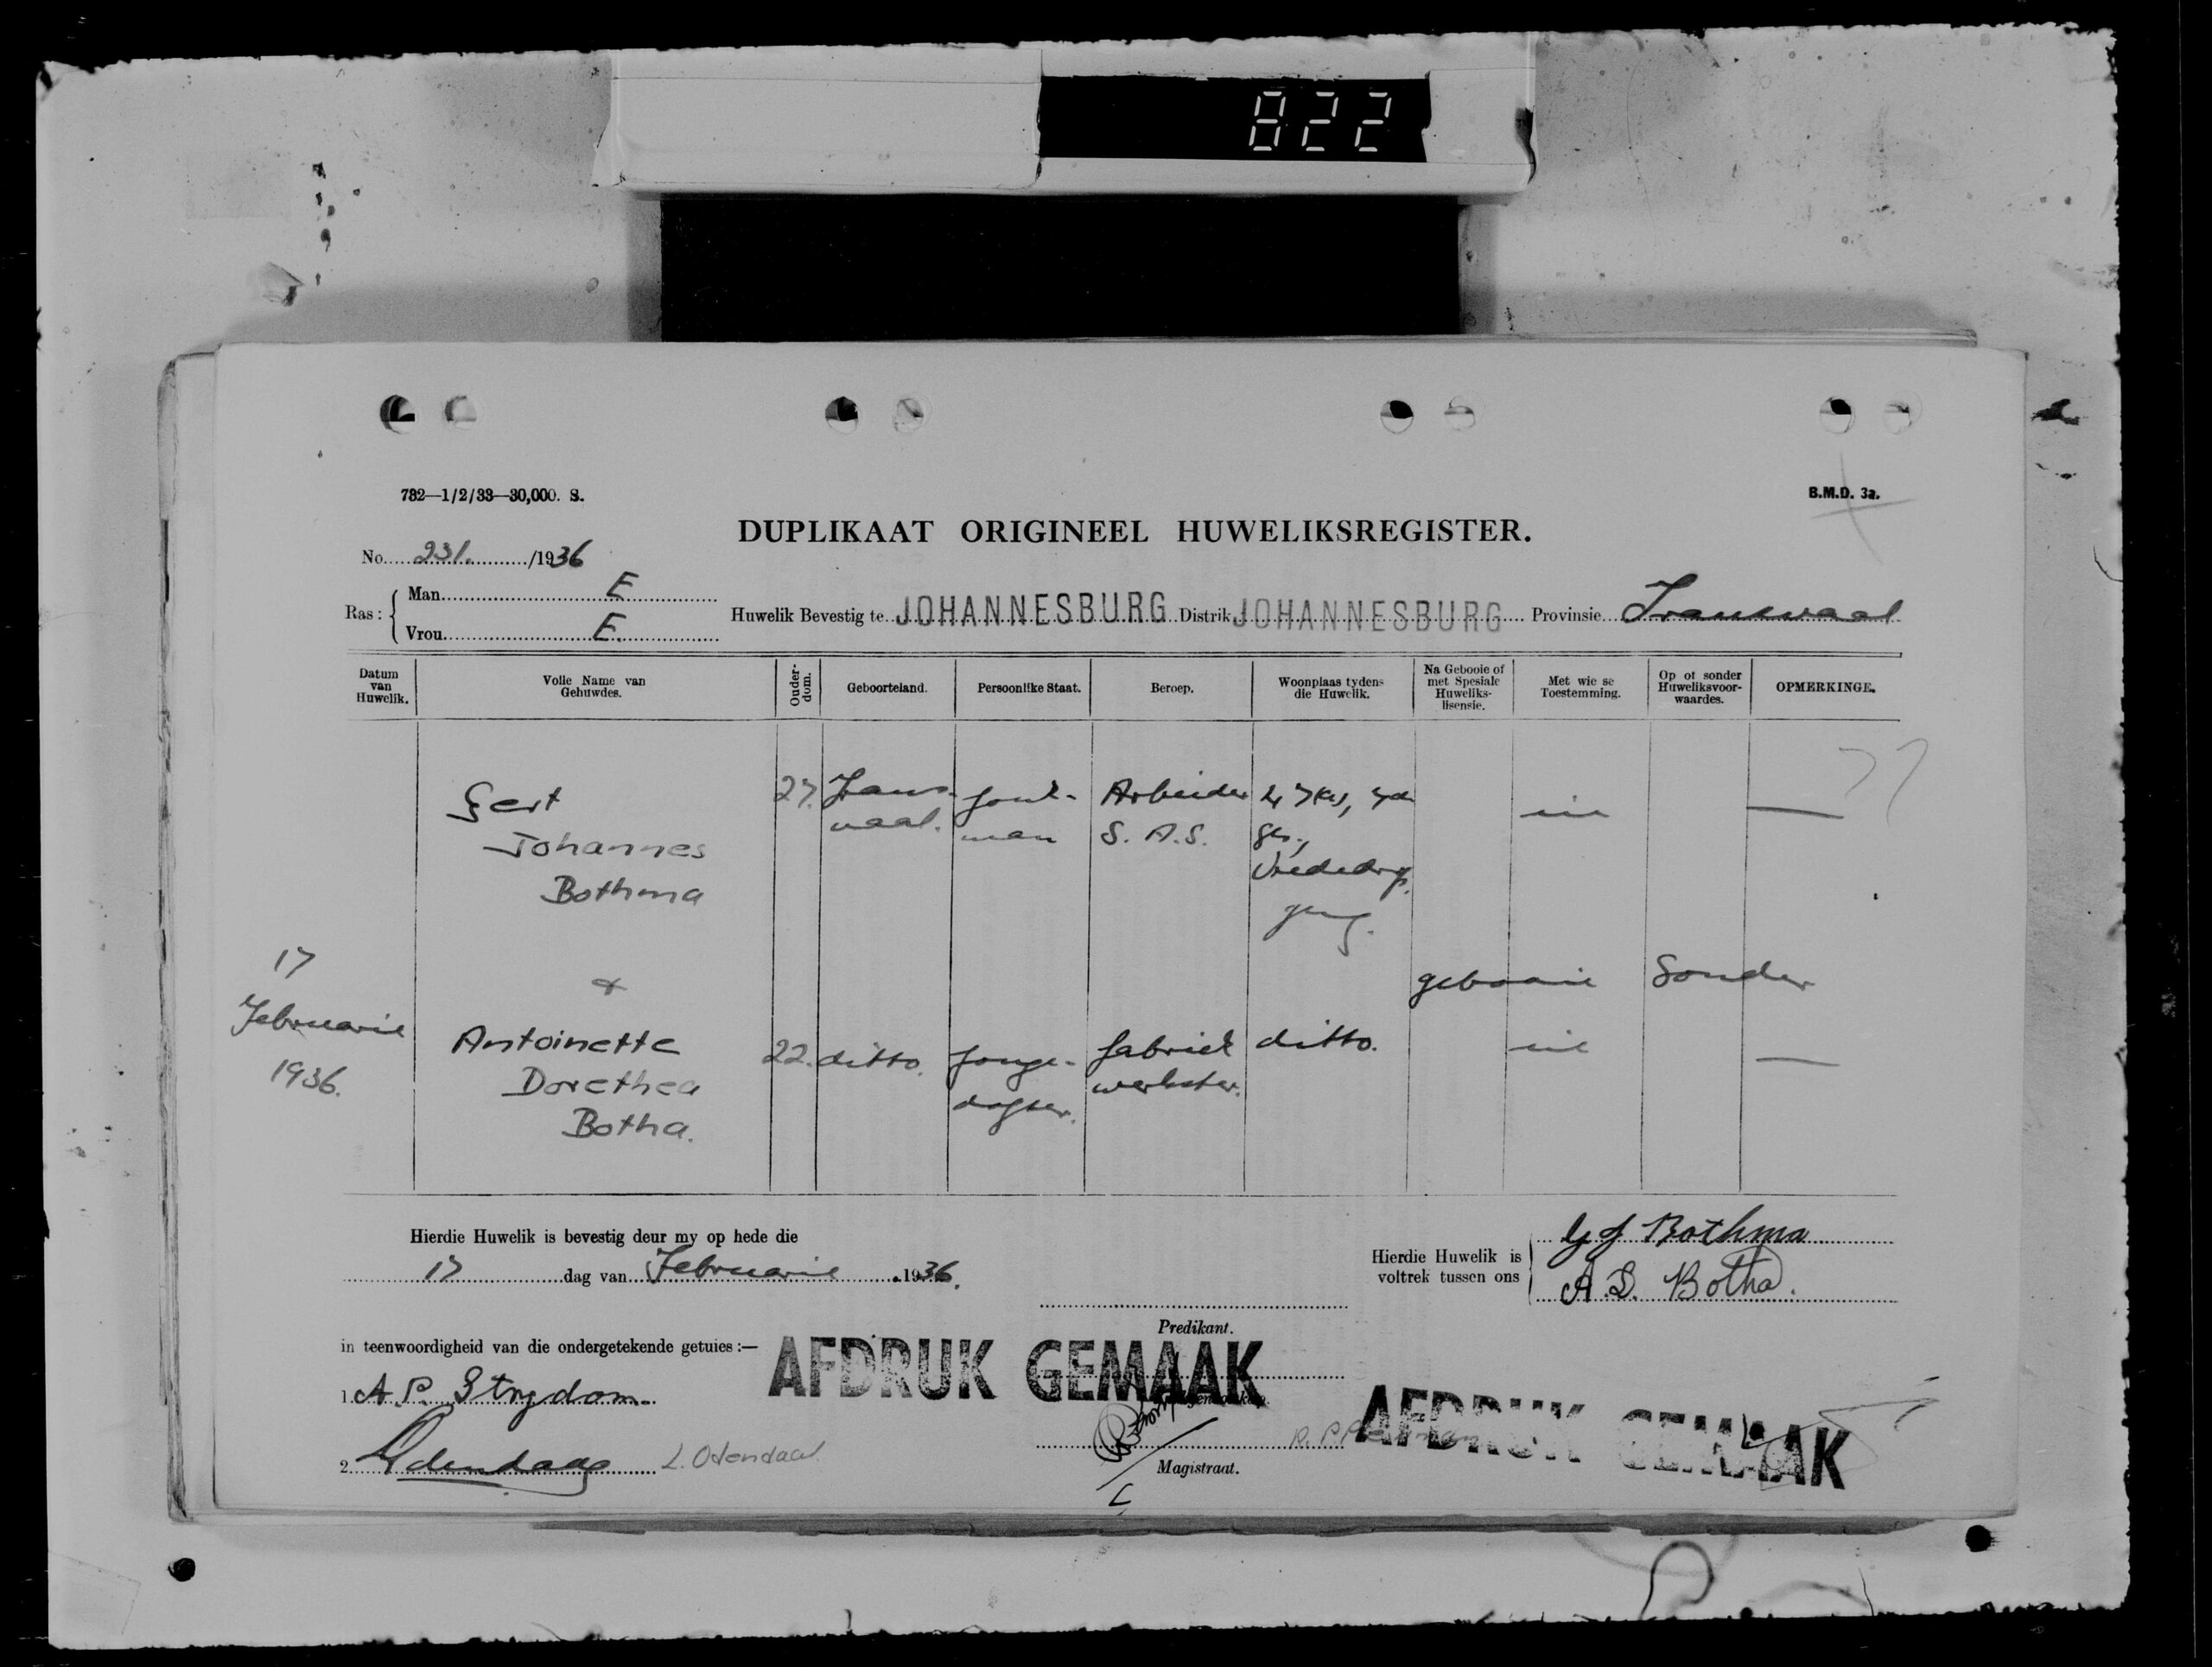 822
782—1/2/33—30,000. S.
B.M.D. 3a.
DUPLIKAAT ORIGINEEL HUWELIKSREGISTER.
No. 231. /1936
Ras: Man E
Vrou E.
Huwelik Bevestig te JOHANNESBURG Distrik JOHANNESBURG Provinsie Transvaal
Datum van Huwelik.
Volle Name van Gehuwdes.
Ouderdom.
Geboorteland.
Persoonlike Staat.
Beroep.
Woonplaas tydens die Huwelik.
Na Gebooie of met Spesiale Huweliks-lisensie.
Met wie se Toestemming.
Op of sonder Huweliksvoor-waardes.
OPMERKINGE.
17
Februarie
1936.
Gert
Johannes
Bothma
27.
Trans-
vaal.
Jonk-
man
Arbeider
S. A. S.
Vrededorp.
&
Antoinette
Dorethea
Botha.
22.
ditto.
Jonge-
dogter.
fabriek
werkster.
ditto.
gebooie
Sonder
Hierdie Huwelik is bevestig deur my op hede die
17 dag van Februarie 1936.
Hierdie Huwelik is voltrek tussen ons
G J Bothma
A. D. Botha.
Predikant.
in teenwoordigheid van die ondergetekende getuies:—
AFDRUK GEMAAK
1. A. P. Strydom.
2. Odendaal L. Odendaal
Magistraat.
AFDRUK GEMAAK